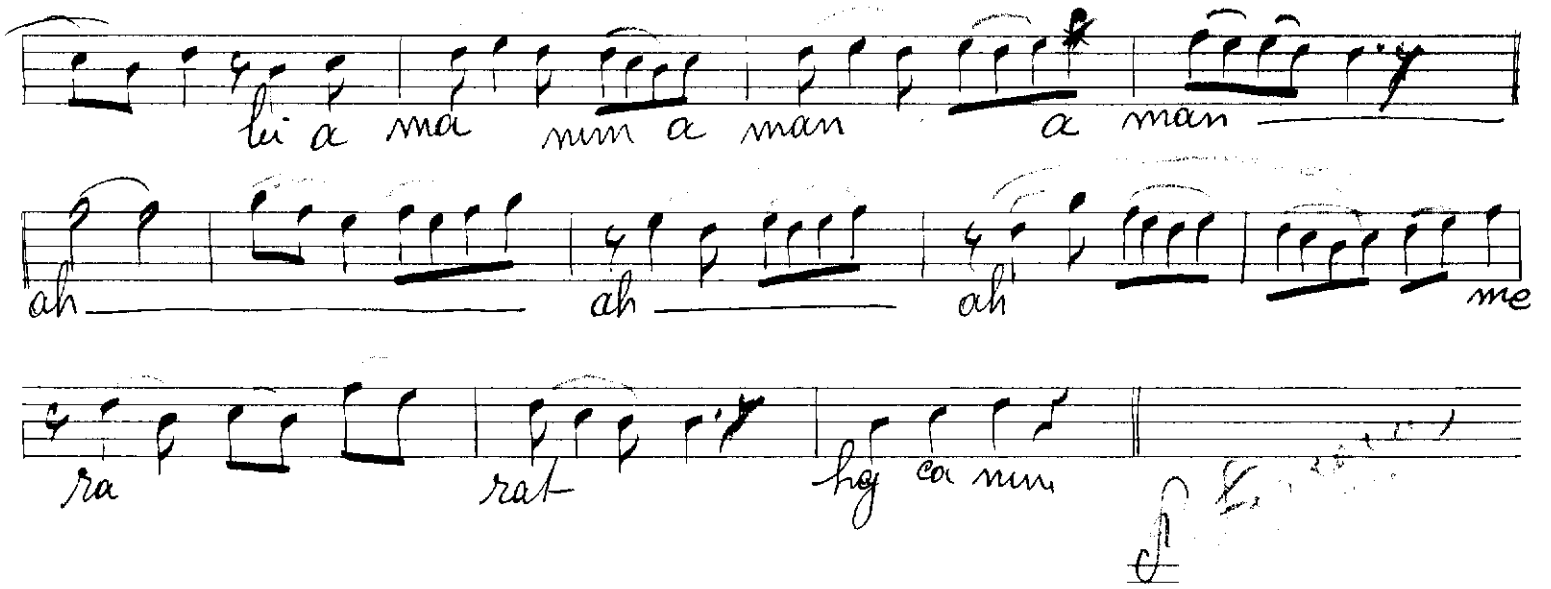 li a ma nım a man a man
ah ah ah me
ra rat hey ca nım